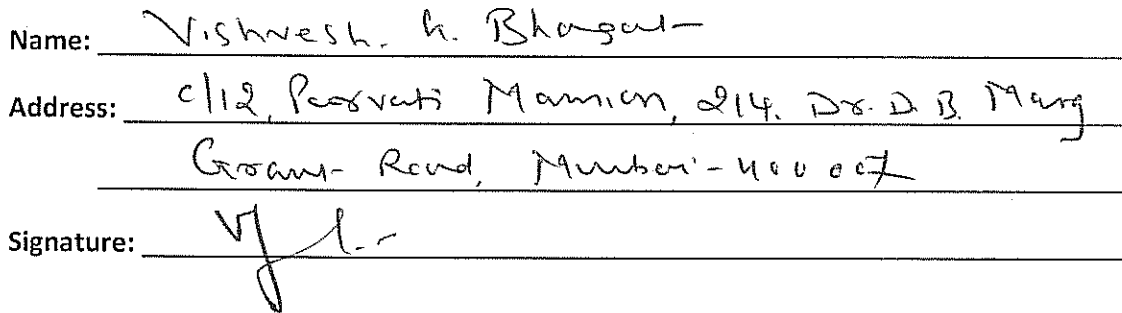 Name: Vishvesh. K. Bhagat
Address: c/12, Parvati Mansion, 214. Dr. D. B. Marg
Grant Road, Mumbai - 400 007
Signature: